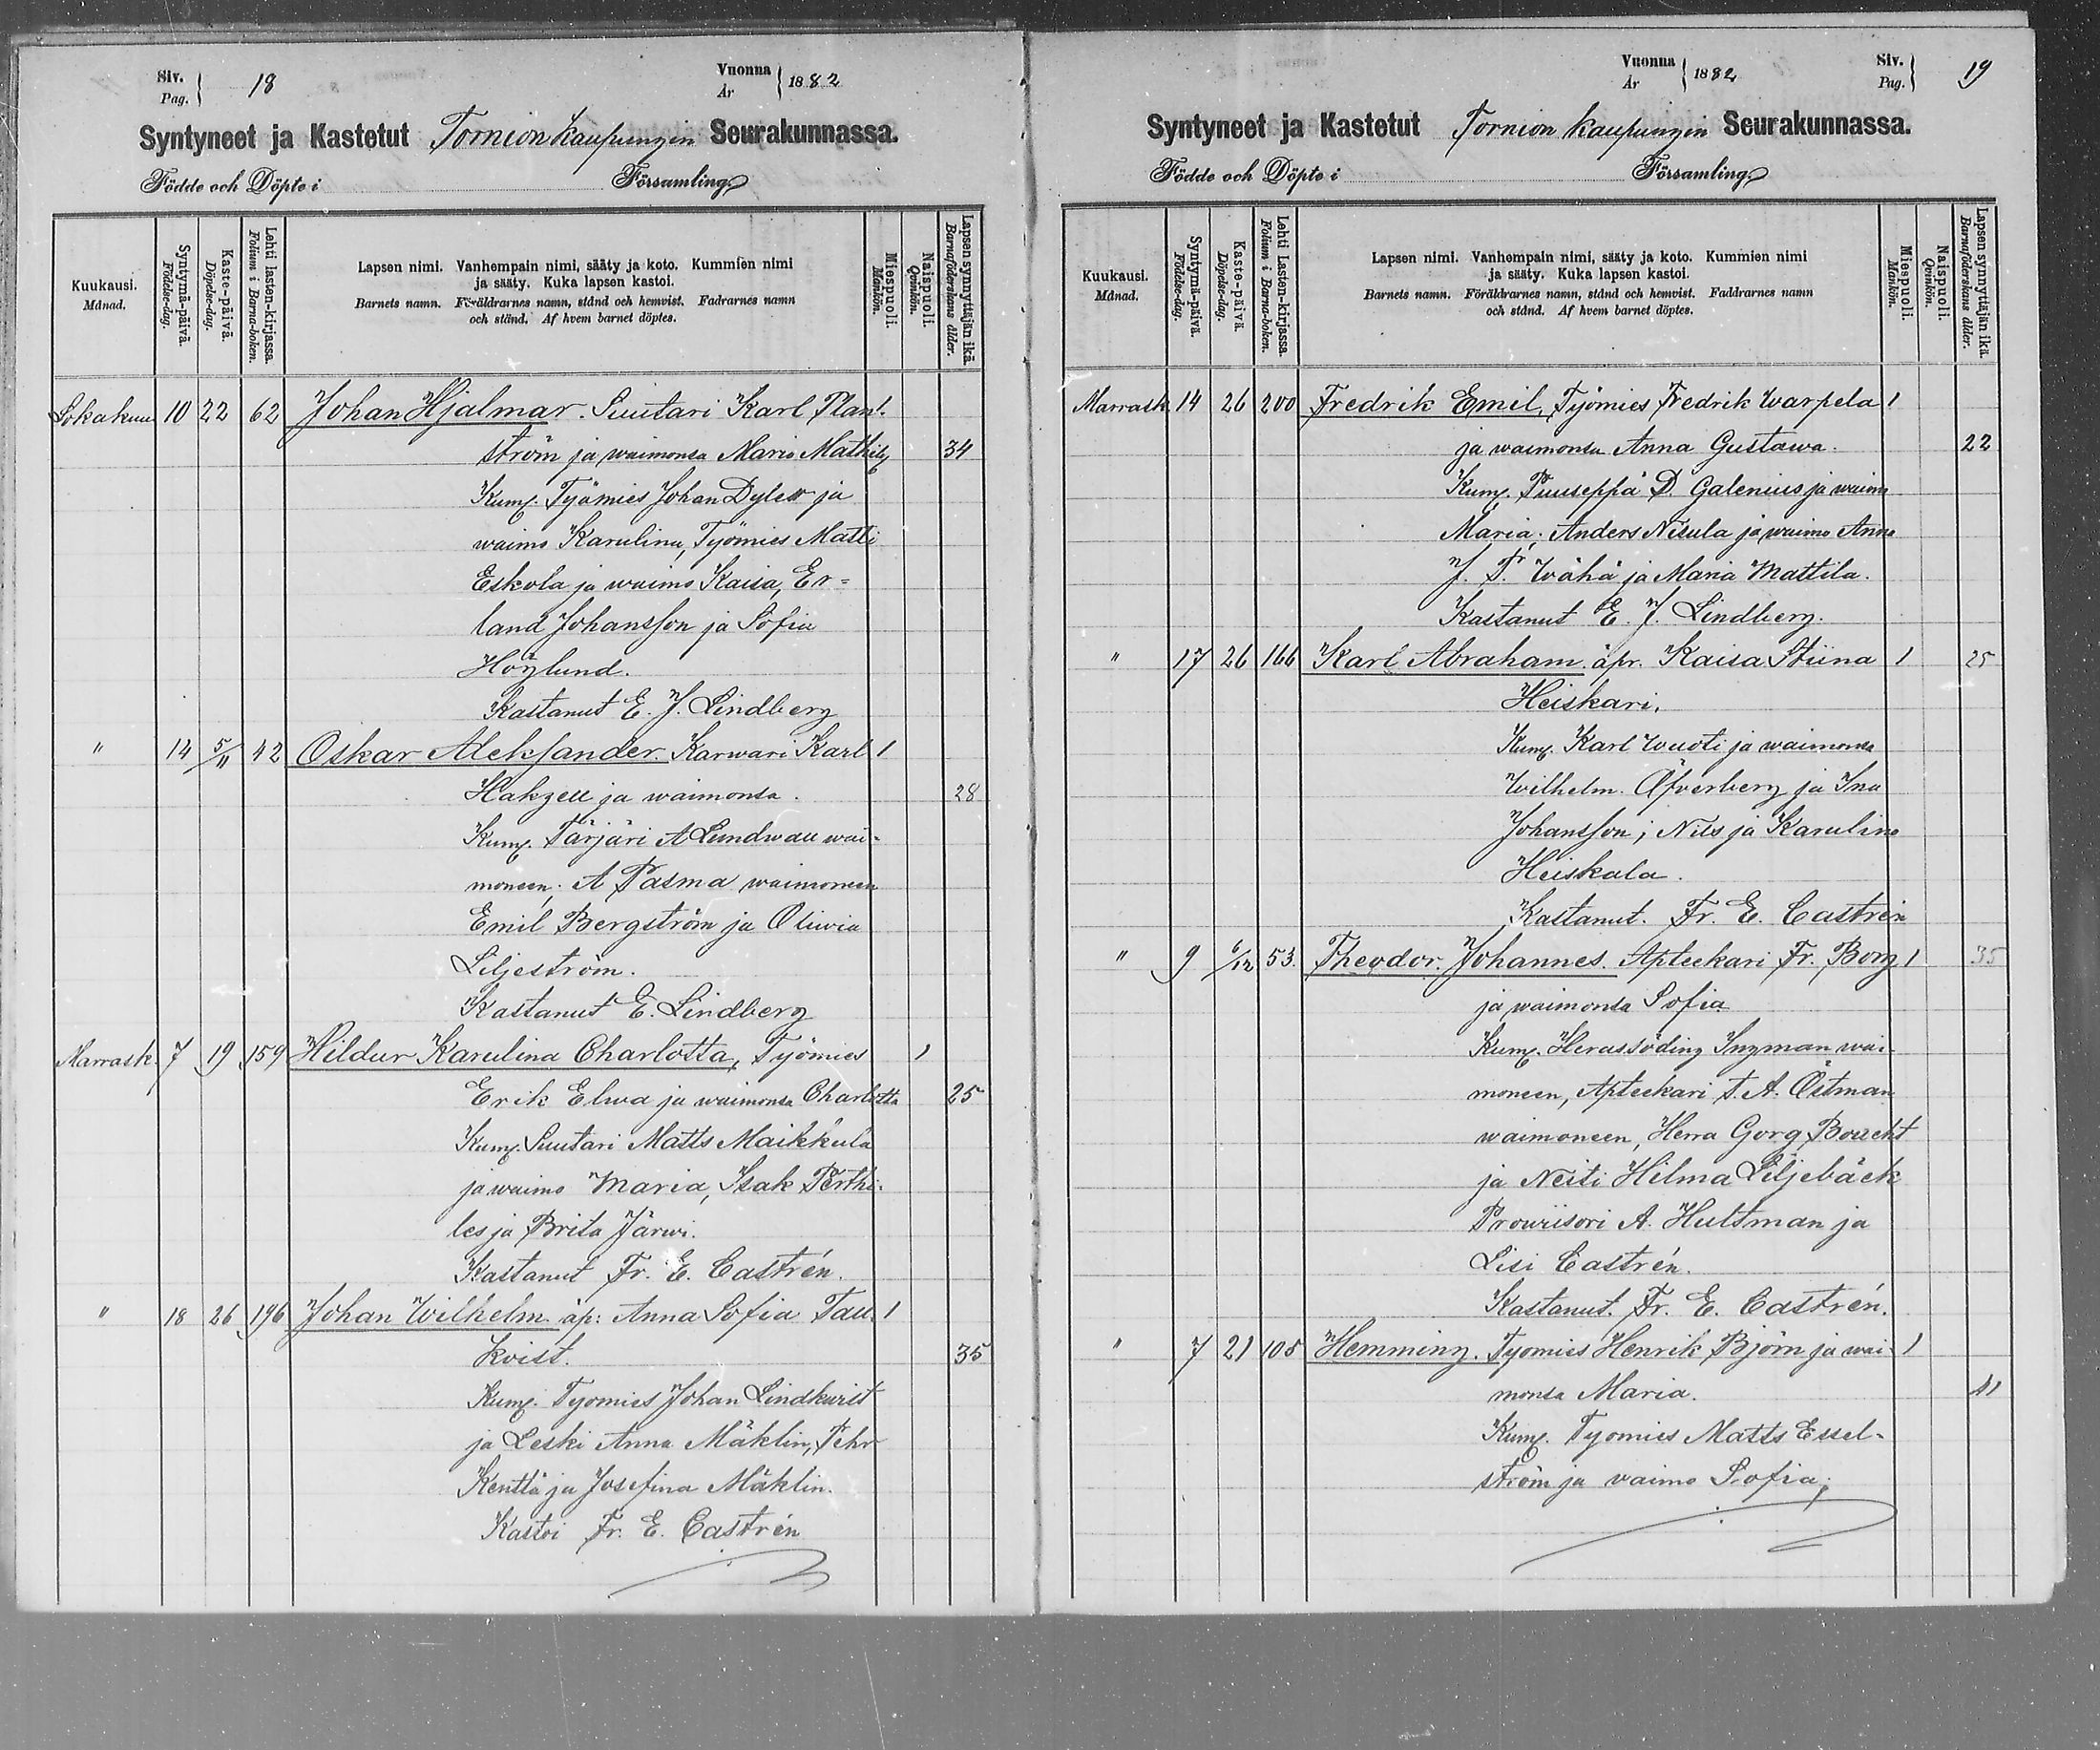 Siv.
Pag. 18
Vuonna
År 1882
Syntyneet ja Kastetut Tornion kaupungin Seurakunnassa.
Födde och Döpte i Församling
Kuukausi.
Månad.
Syntymä-päivä.
Födelse-dag.
Kaste-päivä.
Döpelse-dag.
Lehti lasten-kirjassa.
Folium i Barna-boken.
Lapsen nimi. Vanhempain nimi, sääty ja koto. Kummien nimi
ja sääty. Kuka lapsen kastoi.
Barnets namn. Föräldrarnes namn, stånd och hemvist. Fadrarnes namn
och stånd. Af hvem barnet döptes.
Miespuoli.
Mankön.
Naispuoli.
Qvinkön.
Lapsen synnyttäjän ikä.
Barnaföderskans ålder.
Lokakuu 10 22 62 Johan Hjalmar. Suutari Karl Plant-
ström ja waimonsa Maria Mathild 34
Kum. Työmies Johan Dylew ja
waimo Karulina, Työmies Matti
Eskola ja waimo Kaisa, Er=
land Johansson ja Sofia
Höglund.
Kastanut E. J. Lindberg
" 14 5/11 42 Oskar Aleksander. Karwari Karl 1
Hakzell ja waimonsa. 28
Kum. Färjäri A Lundwall wai-
moneen; A Pasma waimoneen
Emil Bergström ja Oliwia
Liljeström.
Kastanut E. Lindberg
Marrask. 7 19 159 Hildur Karulina Charlotta, Työmies 1
Erik Elwa ja waimonsa Charlotta 25
Kum. Suutari Matts Maikkula
ja waimo Maria, Isak Perthi-
les ja Brita Järwi.
Kastanut Fr. E. Castrén.
" 18 26 196 Johan Wilhelm. äp: Anna Sofia Tau- 1
kvist. 35
Kum. Tyomies Johan Lindkwist
ja Leski Anna Mäklin, Pehr
Kenttä ja Josefina Mäklin.
Kastoi Fr. E. Castrén
Vuonna
År 1882
Siv.
Pag. 19
Syntyneet ja Kastetut Tornion kaupungin Seurakunnassa.
Födde och Döpte i Församling
Kuukausi.
Månad.
Syntymä-päivä.
Födelse-dag.
Kaste-päivä.
Döpelse-dag.
Lehti Lasten-kirjassa.
Folium i Barna-boken.
Lapsen nimi. Vanhempain nimi, sääty ja koto. Kummien nimi
ja sääty. Kuka lapsen kastoi.
Barnets namn. Föräldrarnes namn, stånd och hemvist. Faddrarnes namn
och stånd. Af hvem barnet döptes.
Miespuoli.
Mankön.
Naispuoli.
Qvinkön.
Lapsen synnyttäjän ikä.
Barnaföderskans ålder.
Marrask. 14 26 200 Fredrik Emil, Työmies Fredrik Warpela 1
ja waimonsa Anna Gustawa. 22
Kum. Puuseppä D. Galenius ja waimo
Maria; Anders Nisula ja waimo Anna
J. P. Wähä ja Maria Mattila.
Kastanut E. J. Lindberg.
" 17 26 166 Karl Abraham. äpr. Kaisa Stiina 1 25
Heiskari.
Kum. Karl Wuoti ja waimonsa
Wilhelm. Öfverberg ja Ina
Johansson; Nils ja Karulina
Heiskala.
Kastanut. Fr. E. Castrén
" 9 6/12 53. Theodor. Johannes. Apteekari Fr. Borg 1 35
ja waimonsa Sofia
Kum. Herassöding Ingman wai-
moneen, Apteekari T. A. Östman
waimoneen, Herra Gorg Boucht
ja Neiti Hilma Liljebäck
Prowiisori A. Hultman ja
Lisi Castrén.
Kastanut. Fr. E. Castrén.
" 7 21 105 Hemming. Tyomies Henrik Björn ja wai- 1
monsa Maria. 41
Kum. Tyomies Matts Essel-
ström ja vaimo Sofia;